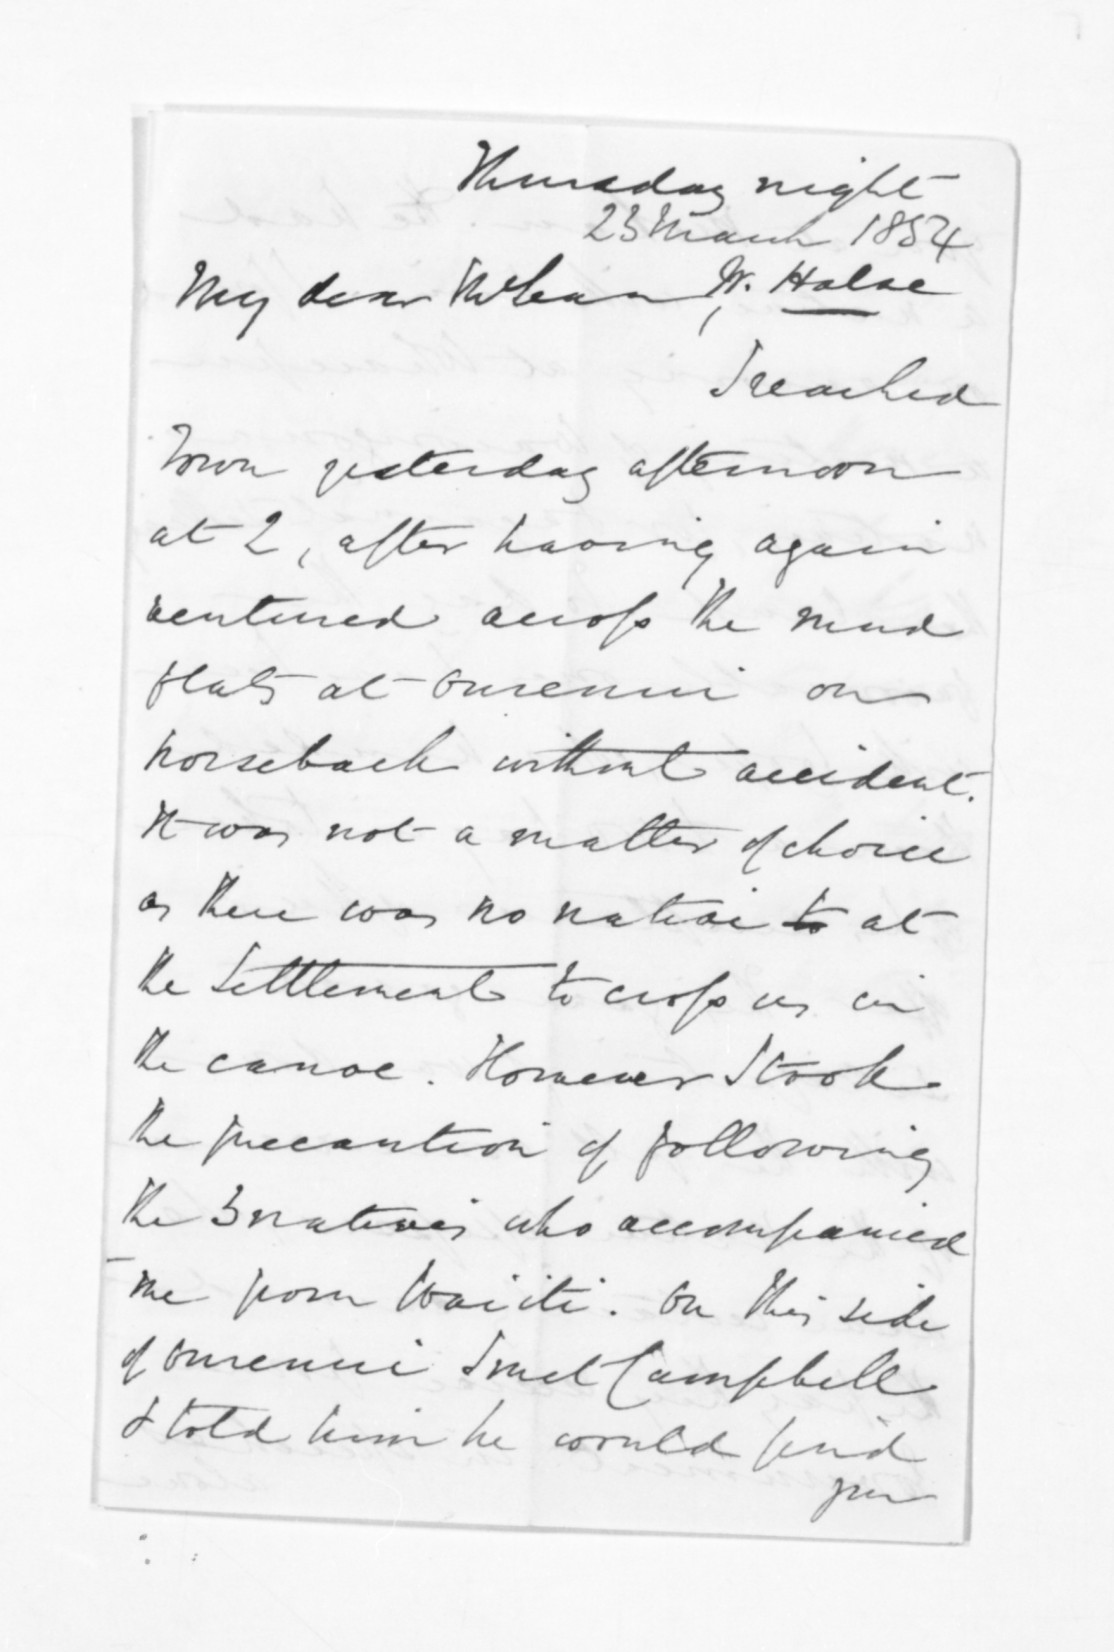 Thursday night
23 March 1854
My dear McLean, W. Halse
I reached
Town yesterday afternoon
at 2, after having again
ventured across the mud
flats at Onrenui on
horseback without accident.
It was not a matter of choice
as there was no native to at
the Settlement to cross us in
the canoe. However I took
the precaution of following
the 3 natives who accompanied
me from Waiiti. On this side
of Onrenui I met Campbell
& told him he would find
you